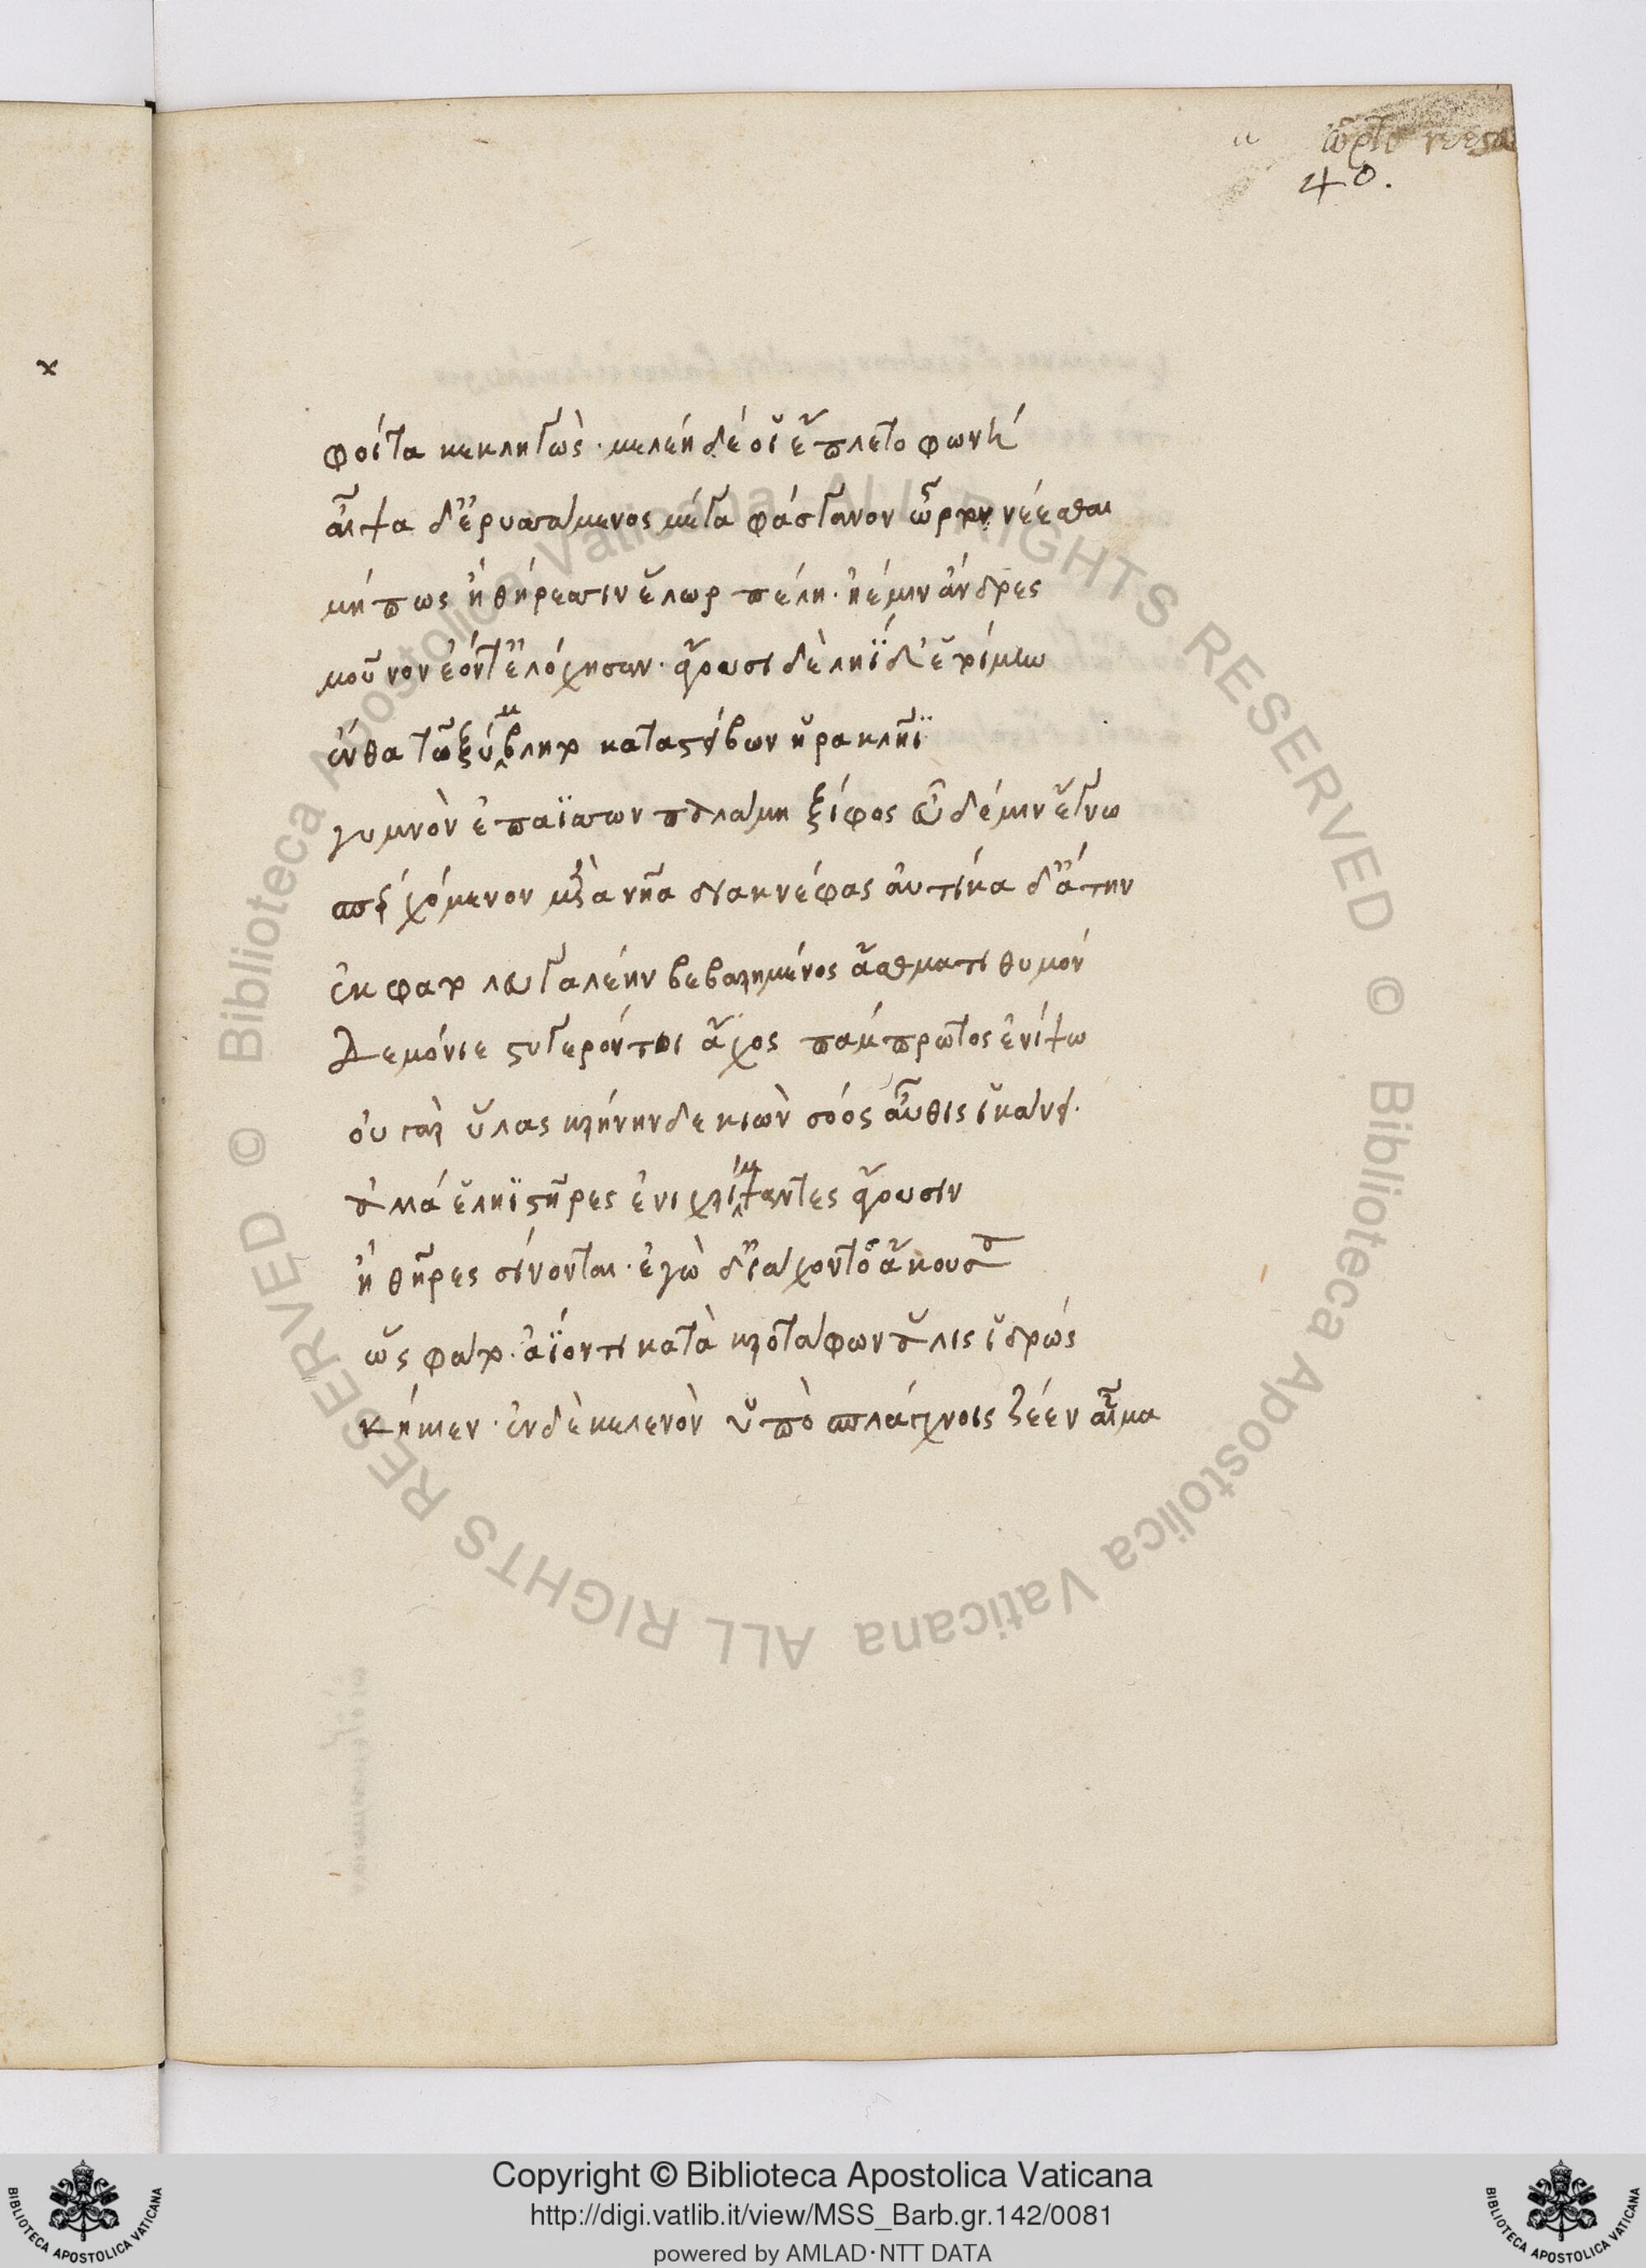 ὦρτο νέεσθαι
40.
φοίτα κεκληγὼς· μελέη δέ οἱ ἔπλετο φωνή
αἶψα δ' ἐρυσσάμενος μέγα φάσγανον ὦρτο νέεσθαι
μήπως ἢ θήρεσσιν ἕλωρ πέλη· ἠέ μιν ἄνδρες
μοῦνον ἐόντ' ἐλόχησαν· ἄγουσι δὲ ληΐδ' ἑτοίμην
ἔνθα τῷ ξύμβλητο κατὰ στίβον ἡρακλῆϊ
γυμνὸν ἐπαΐσσων παλάμη ξίφος εὖ δέ μιν ἔγνω
σπερχόμενον μετὰ νῆα διὰ κνέφας αὐτίκα δ' ἄτην
ἔκφατο λευγαλέην βεβαρημένος ἄσθματι θυμόν
Δεμόνιε στυγερόν τοι ἄχος πάμπρωτος ἐνίψω
οὐ γὰρ ὕλας κρήνηνδε κιὼν σόος αὖθις ἱκάνει·
ἀλλά ἑ ληϊστῆρες ἐνιχρίμψαντες ἄγουσιν
ἢ θῆρες σίνονται· ἐγὼ δ' ἰάχοντος ἄκουσα
ὣς φάτο· ἀΐοντι κατὰ κροτάφων ἅλις ἱδρώς
κήκιεν· ἐν δὲ κελενὸν ὑπὸ σπλάγχνοις ζέεν αἷμα
Copyright © Biblioteca Apostolica Vaticana
http://digi.vatlib.it/view/MSS_Barb.gr.142/0081
powered by AMLAD·NTT DATA
© Biblioteca Apostolica Vaticana ALL RIGHTS RESERVED
© Biblioteca Apostolica Vaticana ALL RIGHTS RESERVED
BIBLIOTECA APOSTOLICA VATICANA
BIBLIOTECA APOSTOLICA VATICANA